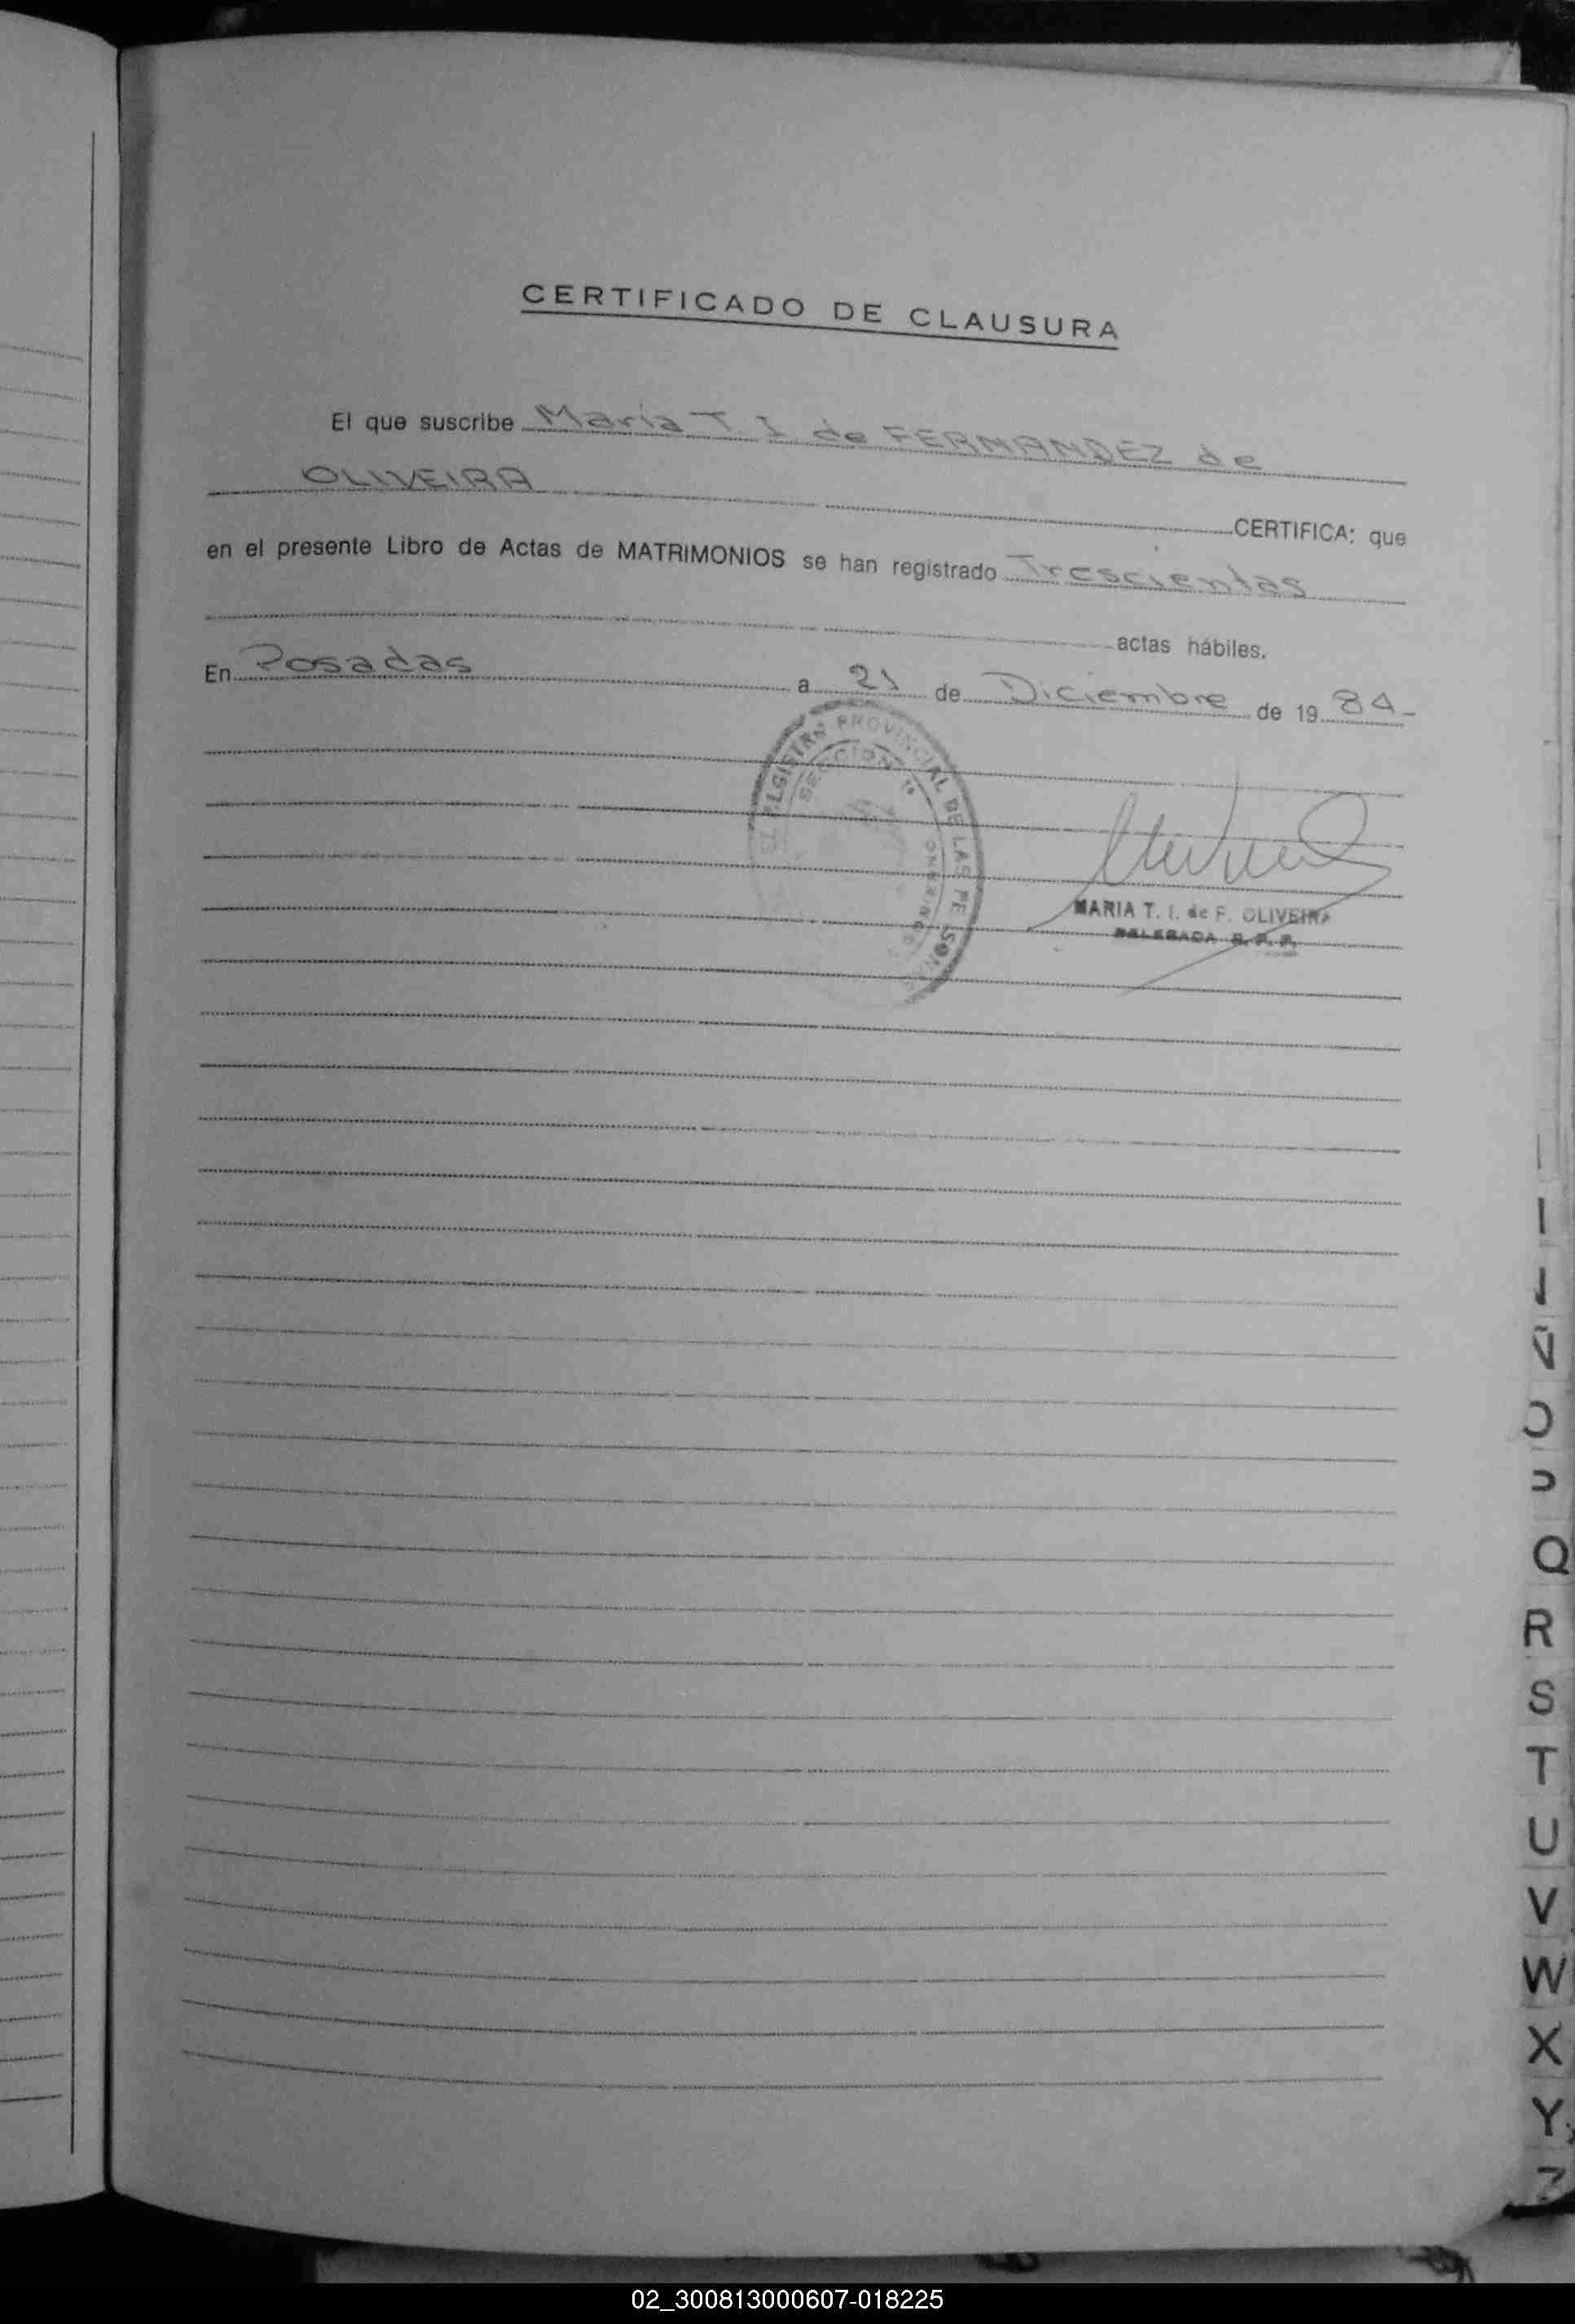 CERTIFICADO DE CLAUSURA
El que suscribe Maria T. I. de FERNANDEZ de
OLIVEIRA CERTIFICA: que
en el presente Libro de Actas de MATRIMONIOS se han registrado Trescientas
actas hábiles.
En Posadas a 21 de Diciembre de 1984-
REGISTRO PROVINCIAL DE LAS PERSONAS
SECCION 1ª
MISIONES
MARIA T. I. de F. OLIVEIRA
DELEGADA R. P. P.
O
P
Q
R
S
T
U
V
W
X
Y
Z
02_300813000607-018225